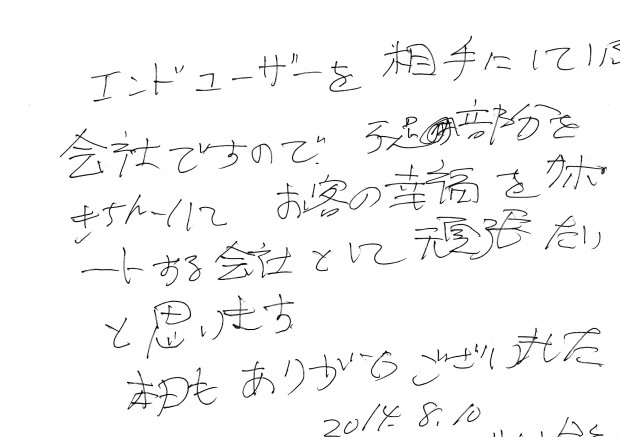 エンドユーザーを相手にしている
会社ですので 不足の部分を
きちんとして お客の幸福をサポ
ートする会社として頑張たい
と思います
本日もありがとうございました
2014. 8. 10